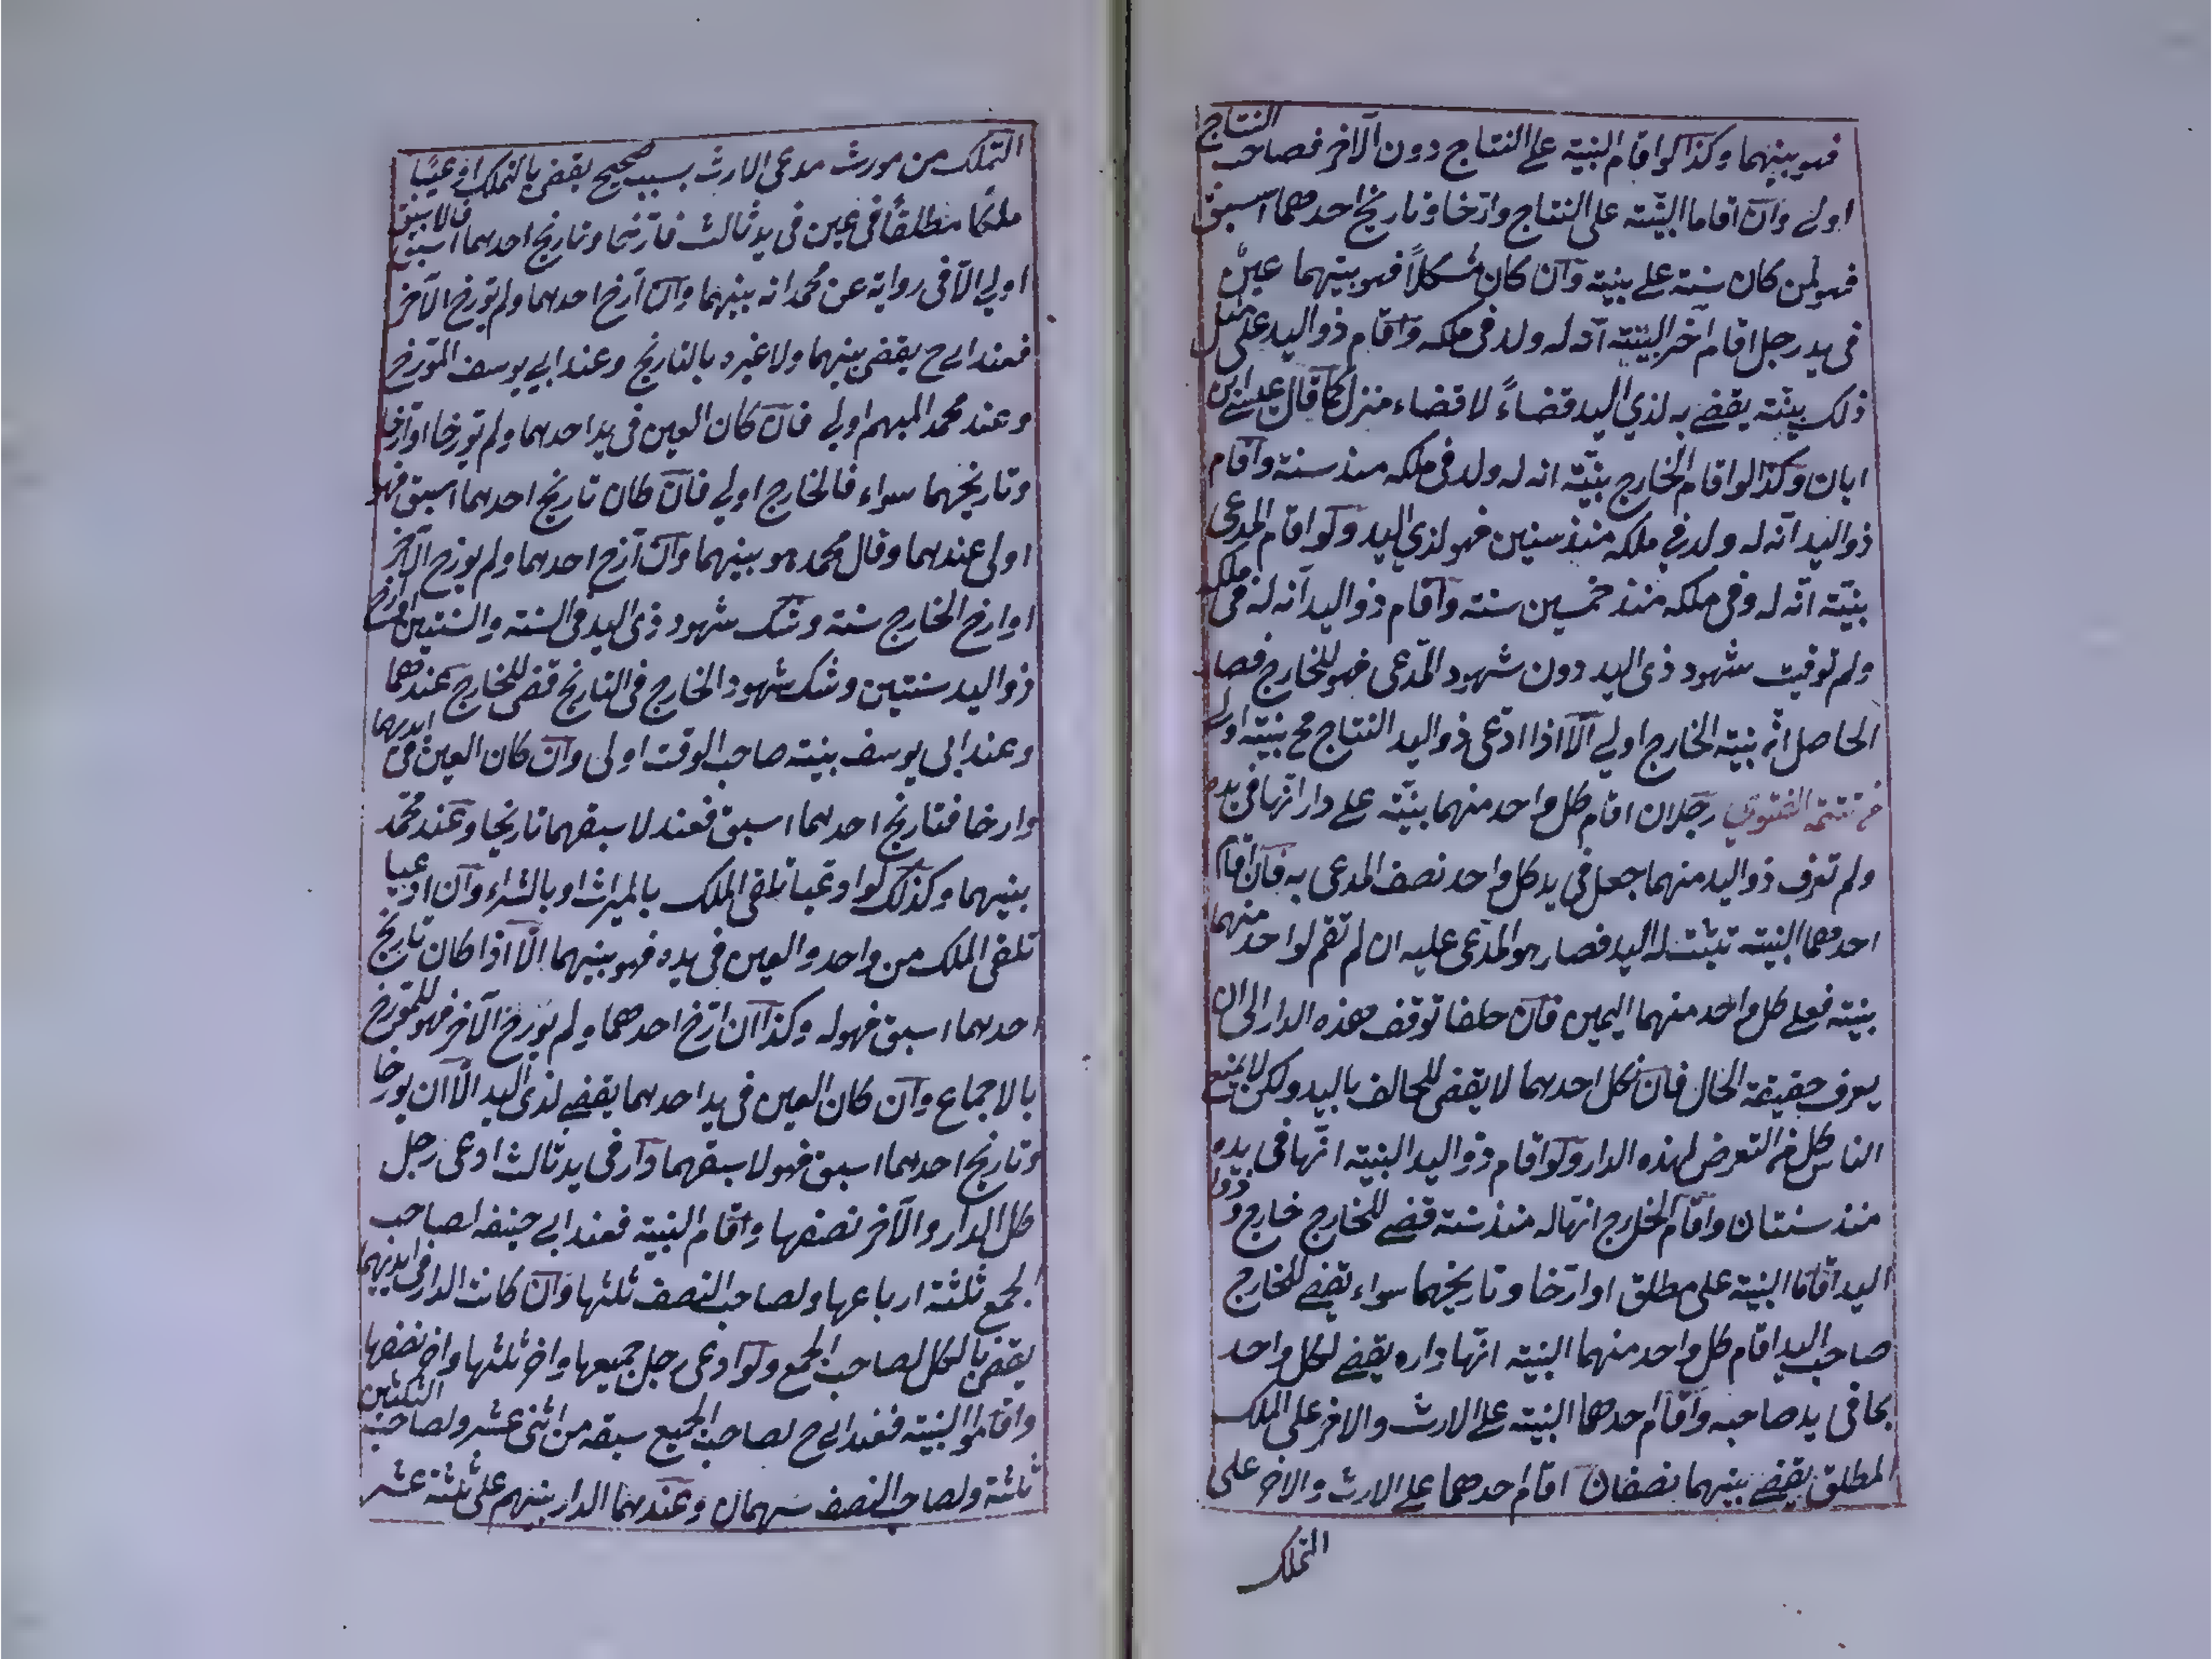 فهو بينهما وكذا لو اقام البنية على النتاج دون الآخر فصاحب النتاج
اولى وان اقاما البينة على النتاج وارّخا وتاريخ احدهما اسبق
فهو لمن كان سنة على بنية وان كان مشكلاً فهو بينهما عين
فى يد رجل اقام آخر البينة انه له ولد فى ملكه واقام ذو اليد على مثل
ذلك بينة يقضى به لذي اليد قضاءً لا قضاء منزل كما قال عيسى ابن
ابان وكذا لو اقام الخارج بينة انه له ولد فى ملكه منذ سنة واقام
ذو اليد انه له ولد في ملكه منذ سنين فهو لذي اليد ولو اقام المدعى
بنية انه له وفى ملكه منذ خمسين سنة واقام ذو اليد انه له فى ملكه
ولم توقيت شهود ذى اليد دون شهود المدعى فهو للخارج فصار
الحاصل انه بنية الخارج اولى الا اذا ادعى ذو اليد النتاج مح بنيته اولى
تتمة الفتوى رجلان اقام كل واحد منهما بينة على دار انها فى يده
ولم تعرف ذو اليد منهما جعل فى يد كل واحد نصف المدعى به فان اقام
احدهما البنية تثبت له اليد فصار هو المدعى عليه ان لم تقم لواحد منهما
بنية فعلى كل واحد منهما اليمين فان حلفا توقف هذه الدار الى ان
يعرف حقيقة الحال فان نكل احدهما لا يقضى للحالف باليد ولكن لا يمنع
الناس كل من التعرض لهذه الدار ولو اقام ذو اليد البنية انها فى يده
منذ سنتان واقام الخارج انها له منذ سنة قضى للخارج خارج وذو
اليد اقاما البنية على مطلق او ارّخا وتاريخهما سواء يقضى للخارج
صاحب اليد اقام كل واحد منهما البنية انها داره يقضى لكل واحد
بما فى يد صاحبه واقام احدهما البنية على الارث والاخر على الملك
المطلق يقضى بينهما نصفان اقام احدهما على الارث والاخر على
التملك
التملك من مورث مدعى الارث بسبب صحيح يقضى بالتملك ادعيا
ملكا مطلقا فى عين فى يد ثالث فارخا وتاريخ احدهما اسبق فالاسبق
اولى الا فى رواية عن محمد انه بينهما وان ارخ احدهما ولم يورخ الآخر
فعند ابى ح يقضى بينهما ولا عبره بالتاريخ وعند ابي يوسف المورخ
وعند محمد المبهم اولى فان كان العين فى يد احدهما ولم يورخا او ارخا
وتاريخهما سواء فالخارج اولى فان كان تاريخ احدهما اسبق فهو
اولى عندهما وقال محمد هو بينهما وان ارخ احدهما ولم يورخ الآخر
او ارخ الخارج سنة وشك شهود ذى اليد فى السنة والسنتين او ارخ
ذو اليد سنتين وشك شهود الخارج فى التاريخ قضى للخارج عندهما
وعند ابى يوسف بينة صاحب الوقت اولى وان كان العين فى ايديهما
وارخا فتاريخ احدهما اسبق فعند لاسبقهما تاريخا وعند محمد
بينهما وكذلك لو ادعيا تلقى الملك بالميراث او بالشراء وان ادعيا
تلقى الملك من واحد والعين فى يده فهو بينهما الا اذا كان تاريخ
احدهما اسبق فهو له وكذا ان ارّخ احدهما ولم يورخ الآخر فهو للمورخ
بالاجماع وان كان العين فى يد احدهما يقضى لذى اليد الا ان يورخا
وتاريخ احدهما اسبق فهو لاسبقهما دار فى يد ثالث ادعى رجل
كل الدار والآخر نصفها واقام البنية فعند ابى حنيفه لصاحب
الجمع ثلثة ارباعها ولصاحب النصف ثلثها وان كانت الدار فى ايديهما
يقضى بالكل لصاحب الجمع ولو ادعى رجل جميعها واخر ثلثها واخر نصفها
واقاموا البنية فعند ابى ح لصاحب الجميع سبقه من اثنى عشر ولصاحب الثلثين
ثلثة ولصاحب النصف سهمان وعندهما الدار بينهم على ثلثة عشر